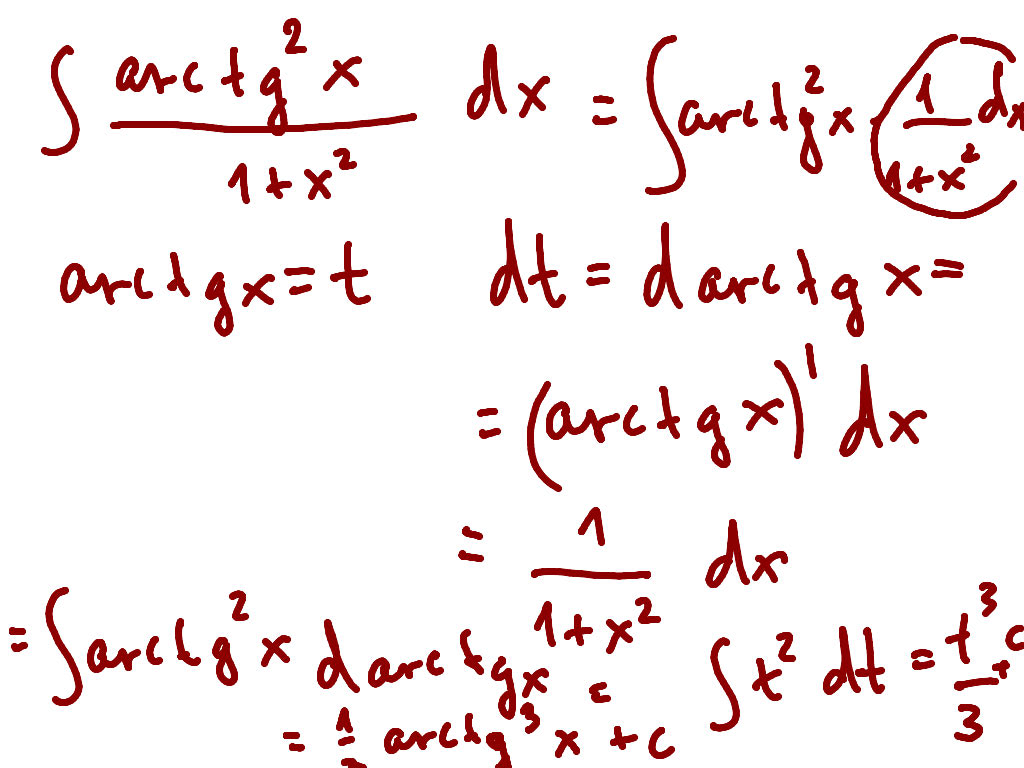 ∫ arctg²x / (1+x²) dx = ∫ arctg²x · 1/(1+x²) dx
arctgx = t dt = d arctg x =
= (arctg x)' dx
= 1/(1+x²) dx
= ∫ arctg²x d arctgx = ∫ t² dt = t³/3 + c
= 1/3 arctg³x + c